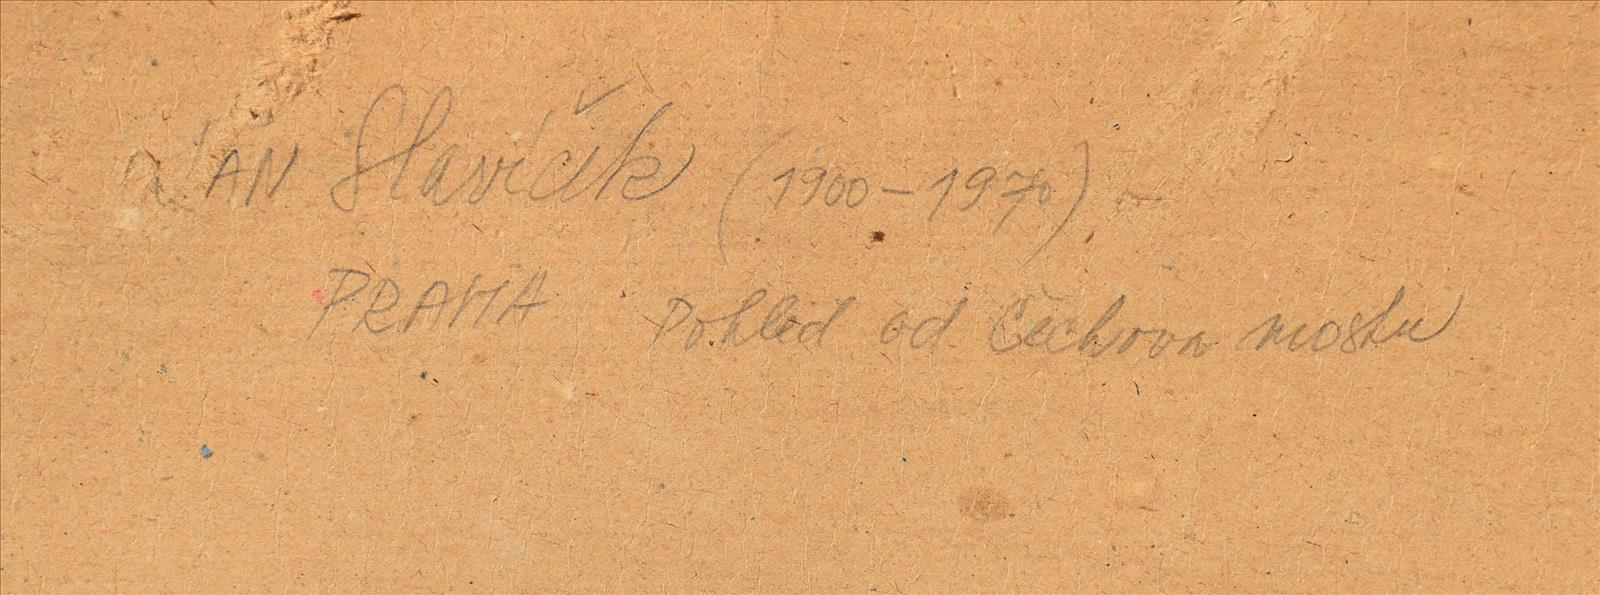 JAN Slavíček (1900-1970)
PRAHA Pohled od Čechova mostu